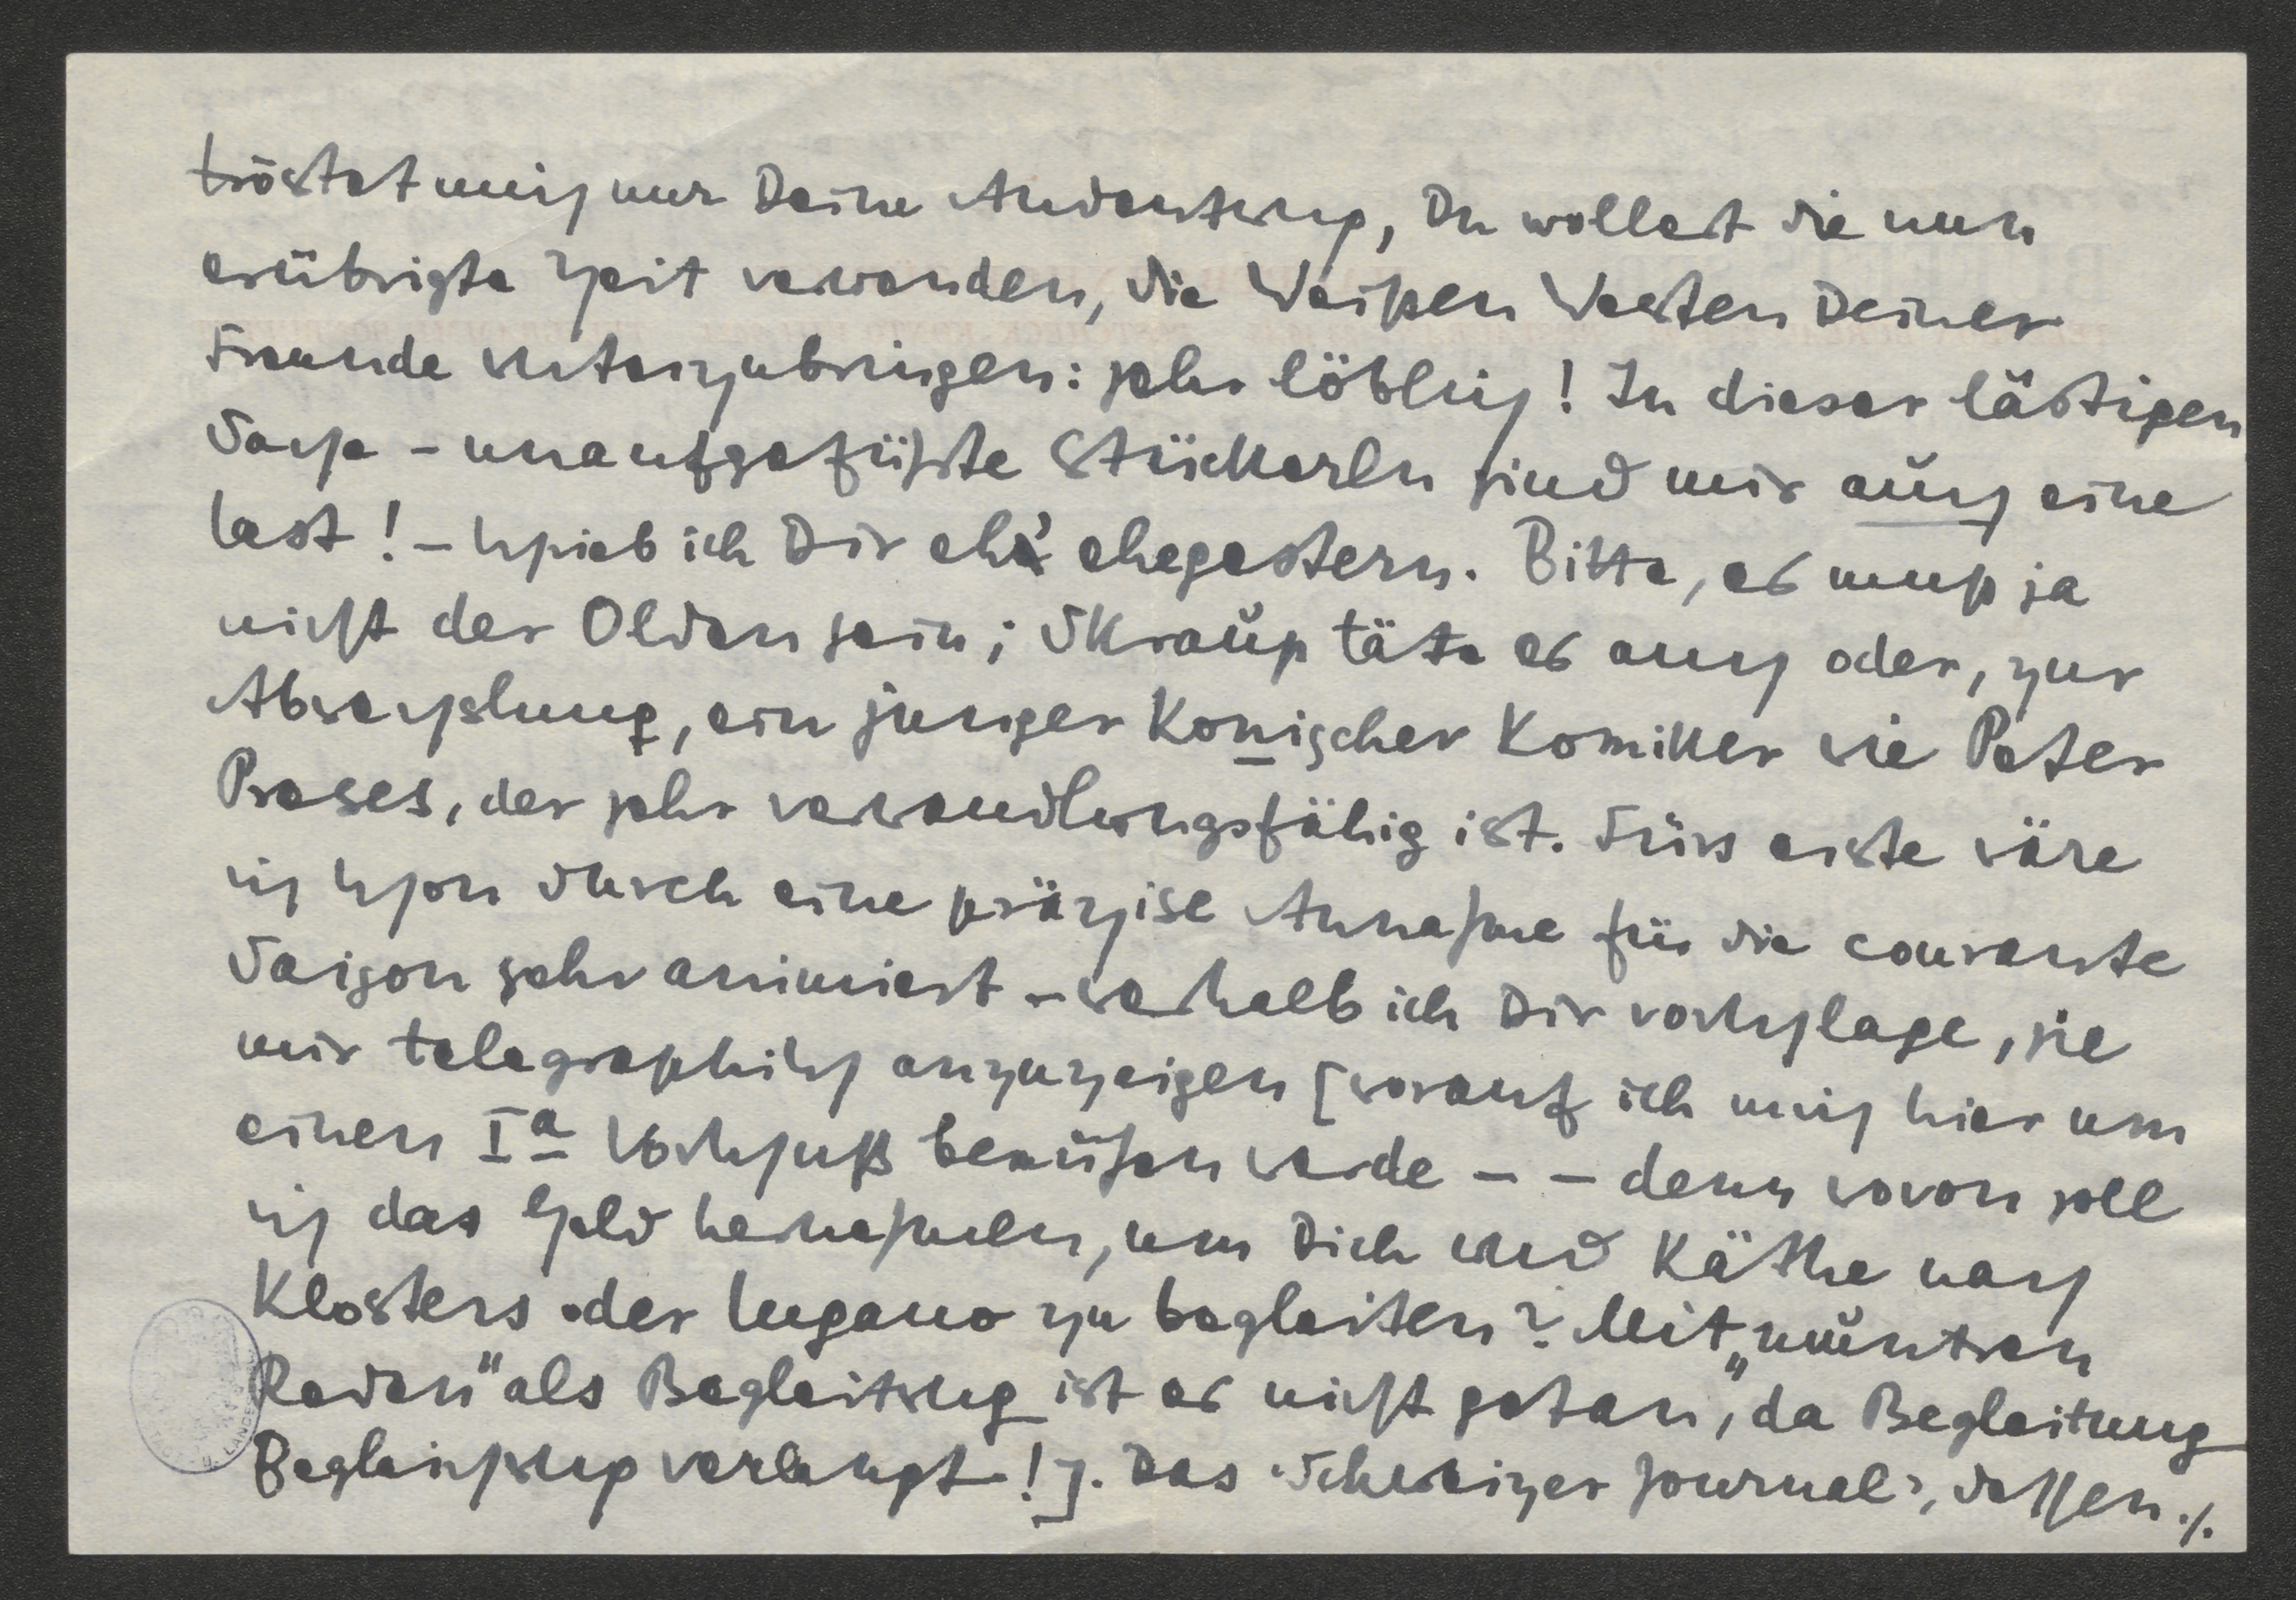 tröstet mich nur Deine Andeutung, Du wollest die nun
erübrigte Zeit verwenden, die Weißen Westen Deiner
Freunde unterzubringen: sehr löblich! In dieser lästigen
Sache - unaufgeführte Stückerln sind mir auch eine
Last! - schrieb ich Dir eh' ehegestern. Bitte, es muß ja
nicht der Olden sein; Skraup täte es auch oder, zur
Abwechslung, ein junger Konischer Komiker wie Peter
Preses, der sehr verwandlungsfähig ist. Fürs erste wäre
ich schon durch eine präzise Annahme für die courante
Saison sehr animiert - weshalb ich Dir vorschlage, sie
mir telegraphisch anzuzeigen [worauf ich mich hier um
einen Ia Vorschuß bemühen werde - - denn wovon soll
ich das Geld hernehmen, um Dich und Käthe nach
Klosters oder Lugano zu begleiten? Mit „muntren
Reden" als Begleitung ist es nicht getan, da Begleitung
Begleichung verlangt!]. Das Schweizer Journal, dessen ./.